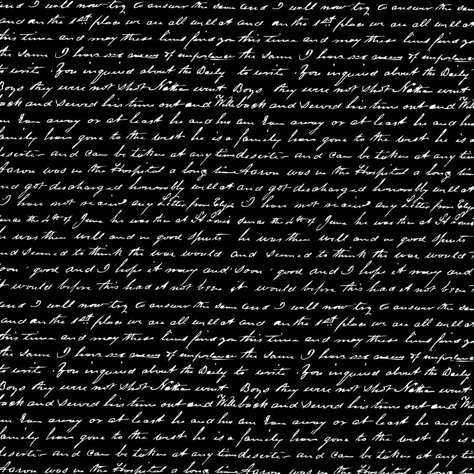 and I will now try to answer the same and I will now try to answer the same and
and in the 1st place we are all well at and in the 1st place we are all well at
this time and may these lines find you this time and may these lines find yo
the same I have no news of importance the same I have no news of importance
to write. You inquired about the Daily to write. You inquired about the Daily
Boys they were not shot Nathan went Boys they were not shot Nathan went
back and served his time out and Will back and served his time out and Will
ran away or at least he and his ran away or at least he and his
family have gone to the west he is a family have gone to the west he is a
deserter and can be taken at any time deserter and can be taken at any
Aaron was in the Hospital a long time Aaron was in the Hospital a long
and got discharged honorably well at and got discharged honorably well at
I have not received any letter from I have not received any letter from
since the 4th of June he was then at St Louis since the 4th of June he was then at St Louis
he was then well and in good spirits he was then well and in good spirits
and seemed to think the war would and seemed to think the war would
soon good and I hope it may and soon good and I hope it may and
it would before this had it not been it would before this had it not been
and I will now try to answer the same and I will now try to answer the same
and in the 1st place we are all well at and in the 1st place we are all well at
this time and may these lines find you this time and may these lines find yo
the same I have no news of importance the same I have no news of importance
to write. You inquired about the Daily to write. You inquired about the Daily
Boys they were not shot Nathan went Boys they were not shot Nathan went
back and served his time out and Will back and served his time out and Will
ran away or at least he and his ran away or at least he and his
family have gone to the west he is a family have gone to the west he is a
deserter and can be taken at any time deserter and can be taken at any
Aaron was in the Hospital a long time Aaron was in the Hospital a long